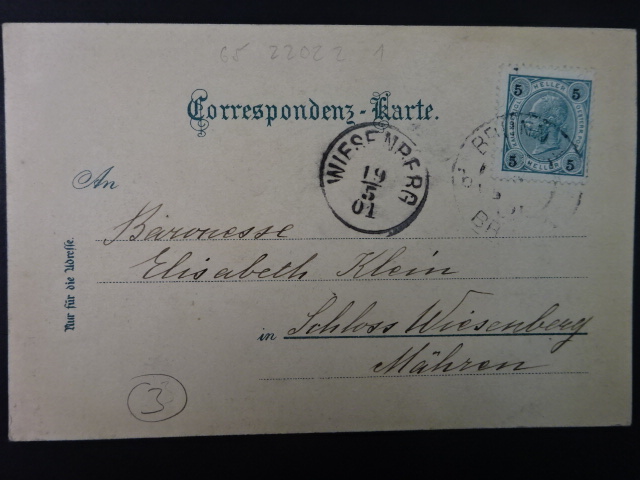 65 22022 1
Correspondenz-Karte.
5 HELLER 5
5 5
WIESENBERG
19
5
01
An
Baronesse
Elisabeth Klein
in Schloss Wiesenberg
Mähren
Nur für die Adresse.
3